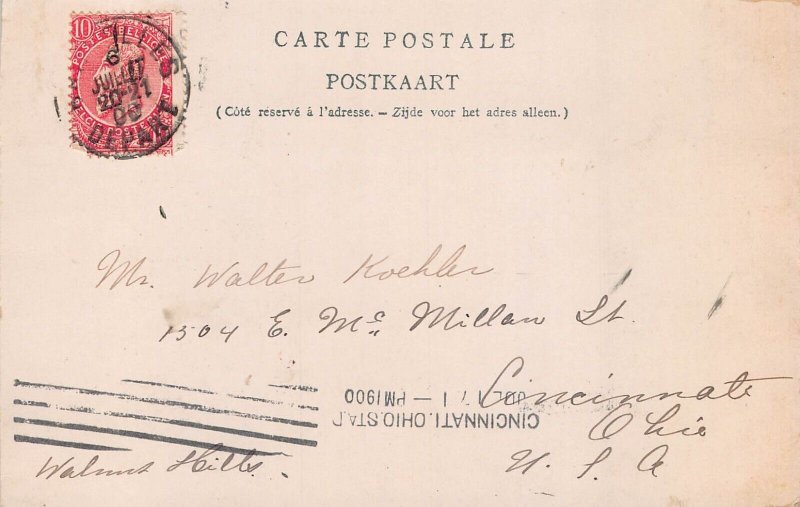 CARTE POSTALE
POSTKAART
(Côté réservé à l'adresse. – Zijde voor het adres alleen.)
10
POSTES
JUIL
20-21
DEPART
Mr. Walter Koehler
1504 E. Mc Millan St.
Cincinnate
Ohio
U. S. A
CINCINNATI.OHIO.STA.
JUL 17 1 – PM 1900
Walnut Hills.